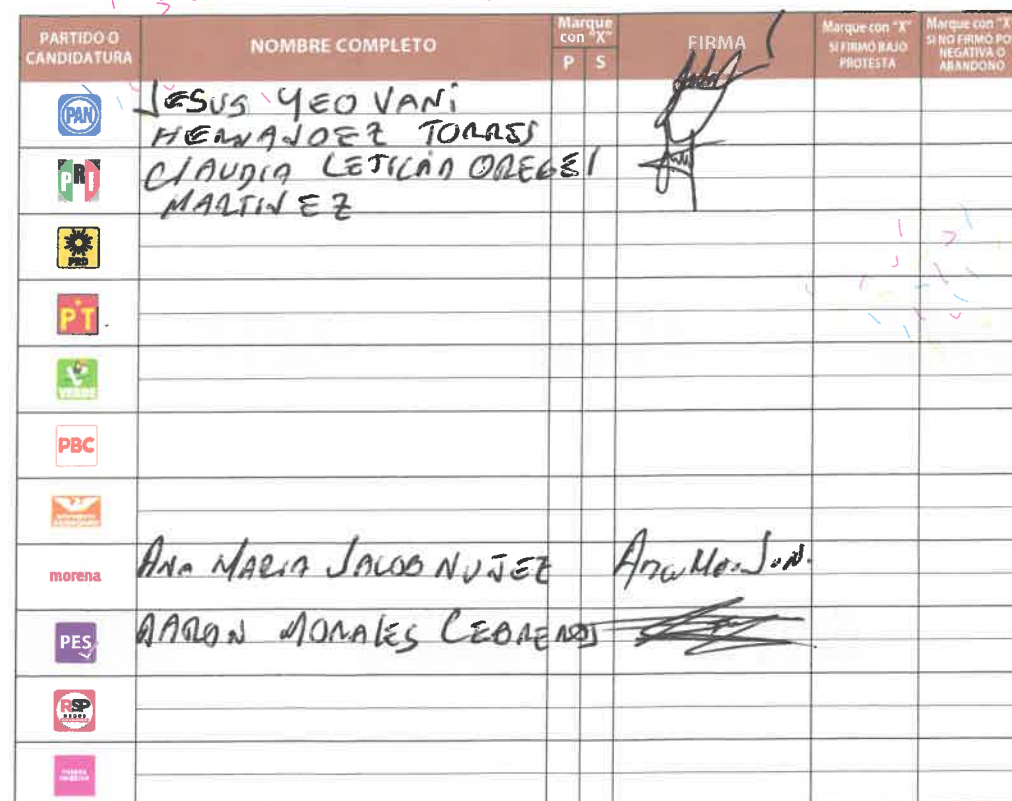 PARTIDO O CANDIDATURA NOMBRE COMPLETO Marque con "X" P S FIRMA Marque con "X" SI FIRMÓ BAJO PROTESTA Marque con "X" SI NO FIRMÓ POR NEGATIVA O ABANDONO
PAN JESUS YEOVANI
HERNANDEZ TORRES
PRI CLAUDIA LETICIA OREGEL
MARTINEZ
PRD
PT
VERDE
PBC
morena ANA MARIA JACOB NUÑEZ Ana Ma. J. N.
PES AARON MORALES CEBREROS
RSP